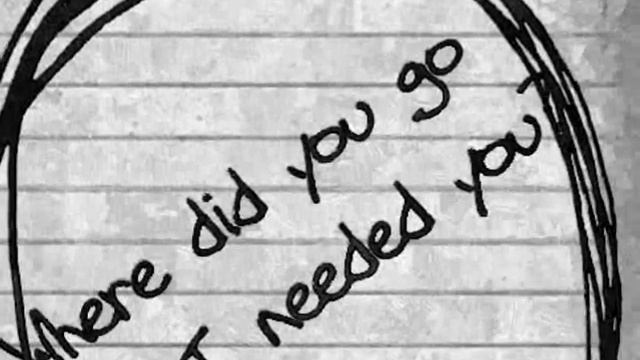 Where did you go
I needed you?